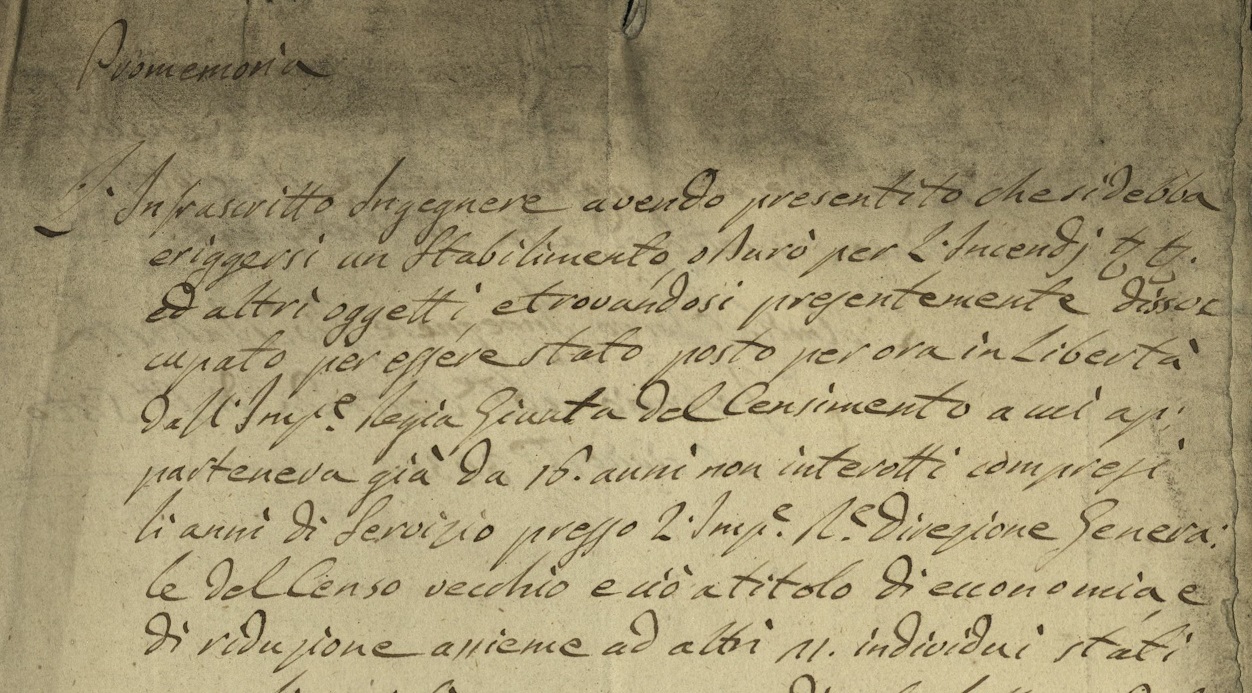 Promemoria
L'Infrascritto Ingegnere avendo presentito che si debba
eriggersi un Stabilimento, o Burò per L'Incendj
ed altri oggetti, e trovandosi presentemente dissoc
cupato per essere stato posto per ora in Libertà
dall'Imp.e Regia Giunta del Censimento a cui ap:
parteneva già da 16. anni non interotti compresi
li anni di Servizio presso L'Imp.e R.e Direzione Genera:
le del Censo vecchio e ciò a titolo di economia, e
di riduzione assieme ad altri 11. individui stati